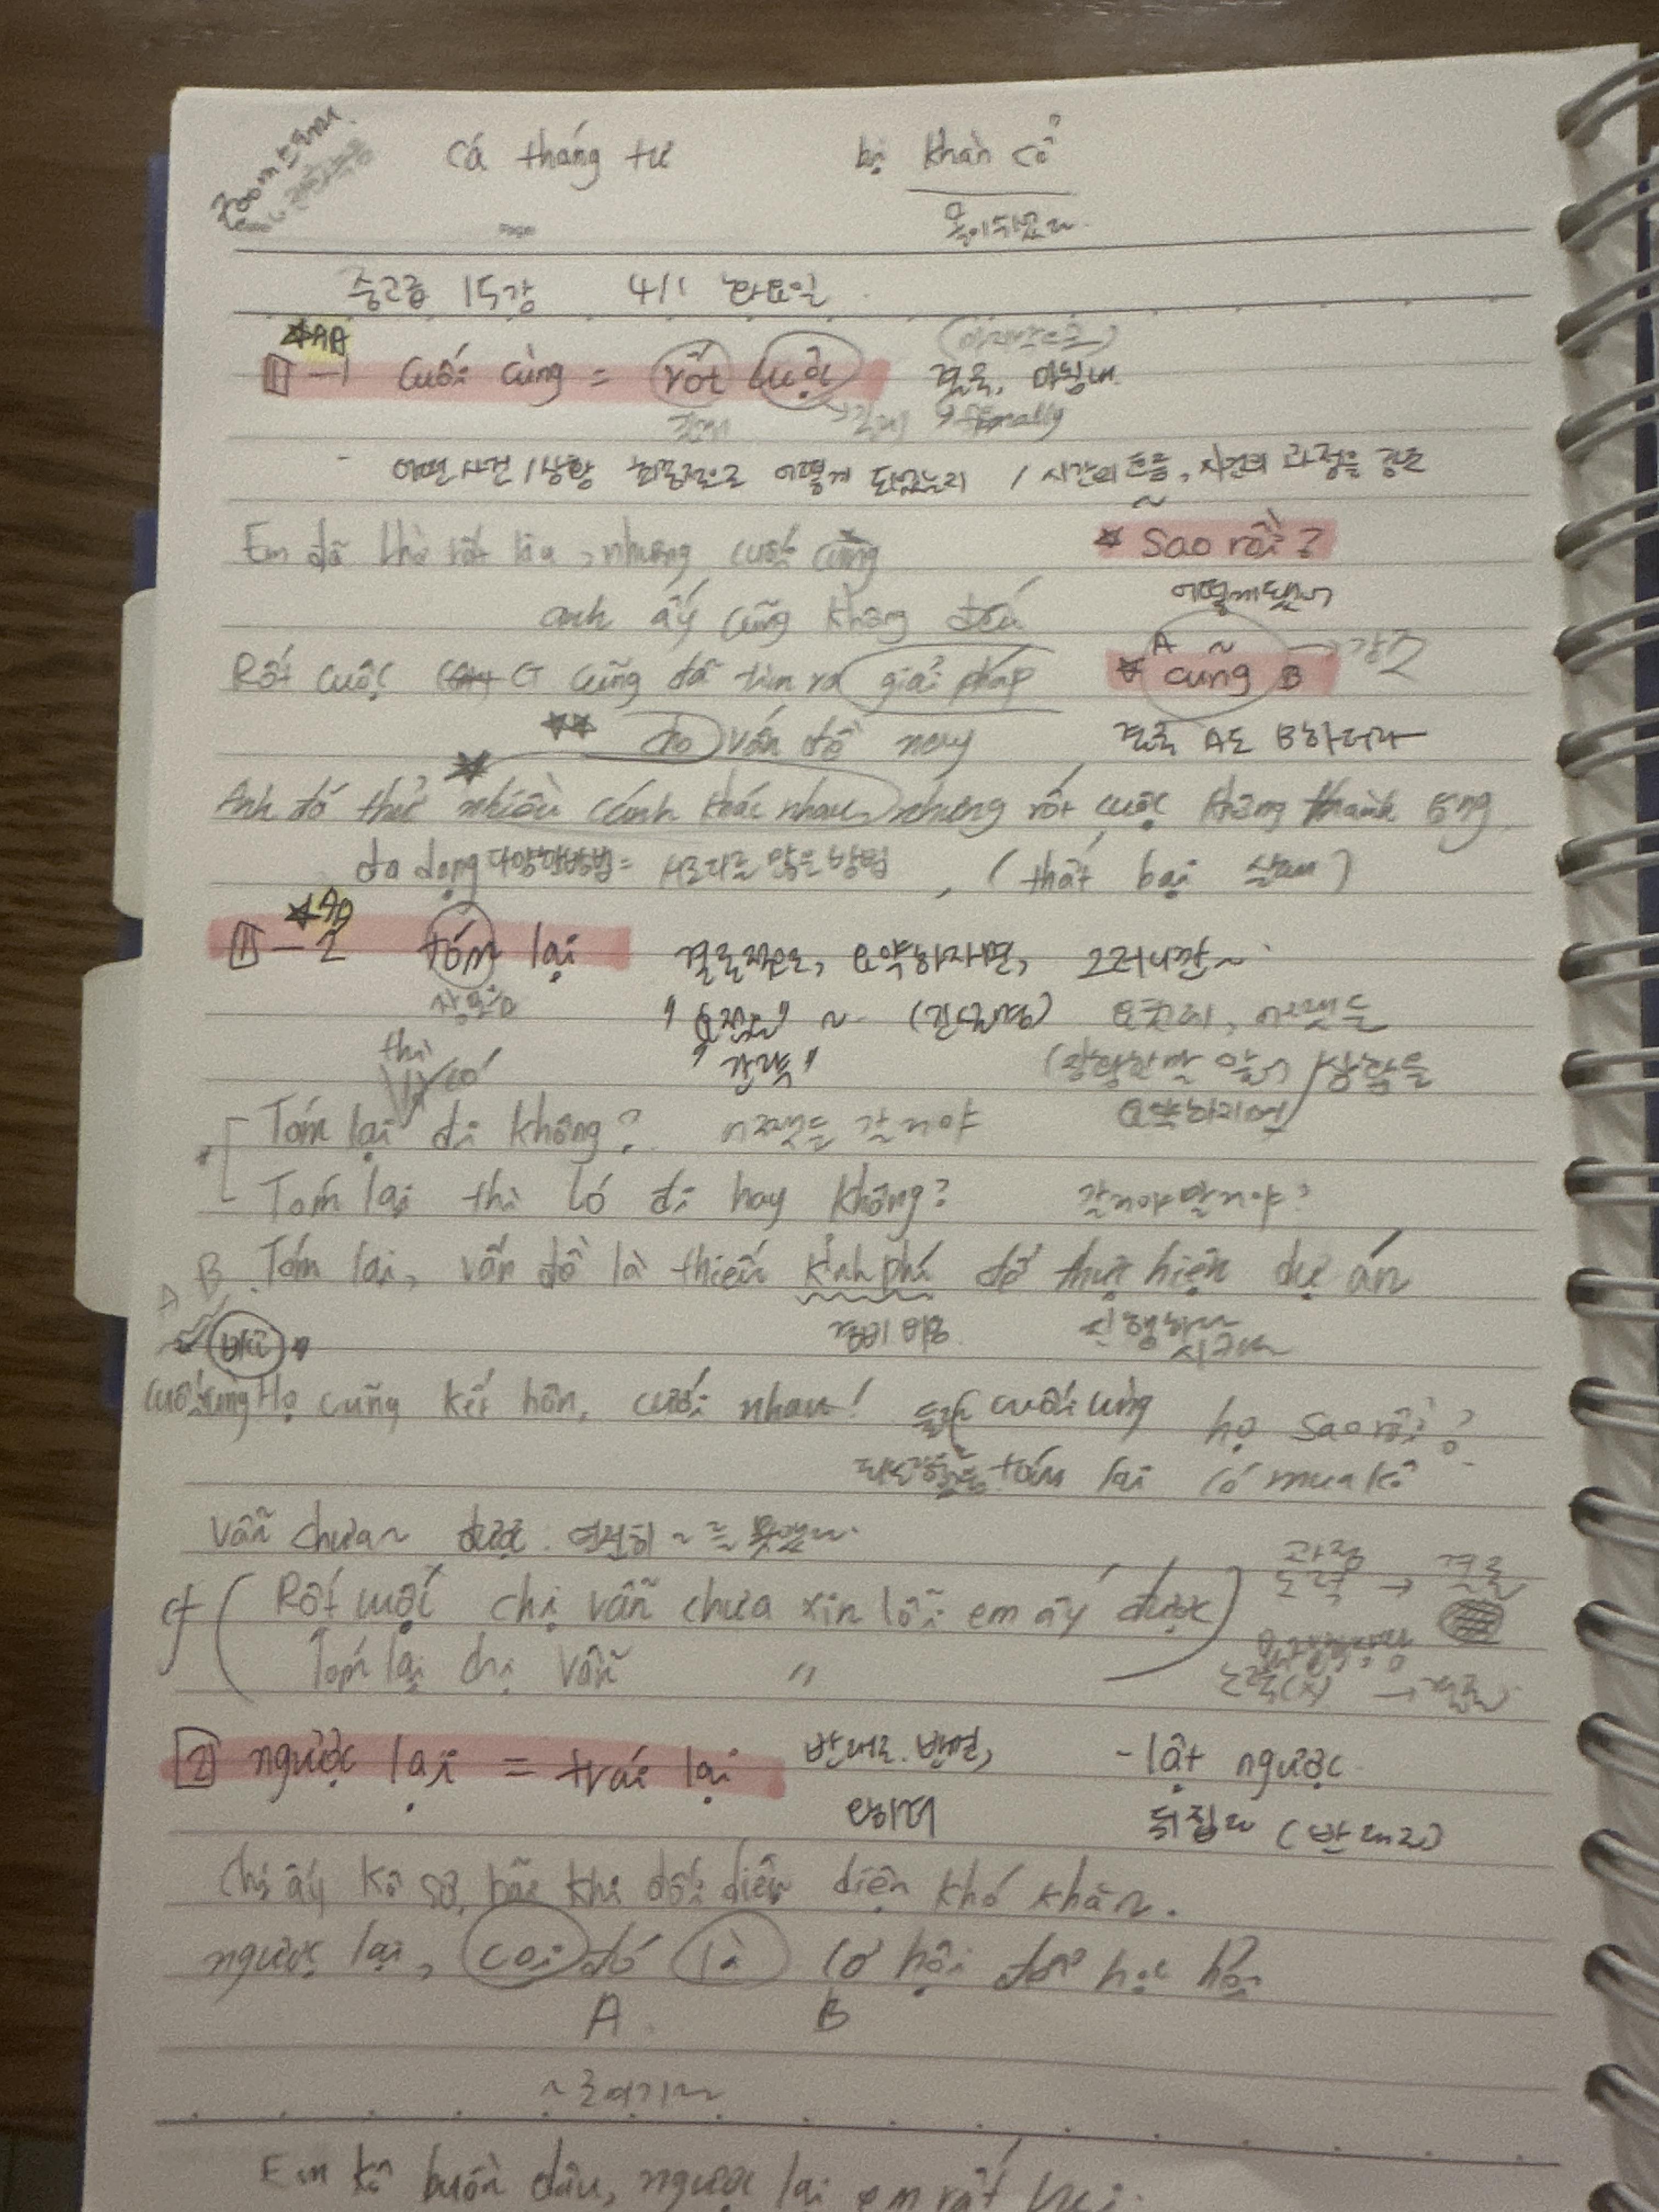 Cá tháng tư bị khàn cổ
목이쉬었다
Page:
중고급 15강 4/1 화요일
1-1 Cuối cùng = rốt cuộc 결국, 마침내
finally
- 어떤 사건/상황 최종적으로 어떻게 되었는지 / 시간의 흐름, 사건의 과정을 강조
Em đã chờ rất lâu, nhưng cuối cùng ★ Sao rồi?
어떻게됐어
anh ấy cũng không đến
A ~ → 강조
Rốt cuộc CT cũng đã tìm ra giải pháp ★ cũng B
★★ cho vấn đề này 결국 A도 B하더라
★
Anh đó thử nhiều cách khác nhau nhưng rốt cuộc không thành công
đa dạng 다양한방법 = 서로다른 많은 방법, (thất bại 실패)
1-2 tóm lại 결론적으로, 요약하자면, 그러니깐~
" " ~ 요컨대, 어쨌든
thì "간략" (장황한 말 앞) / 상황을
có 요약하자면
Tóm lại đi không? 어쨌든 갈거야
Tóm lại thì có đi hay không? 갈거야말거야?
A B. Tóm lại, vấn đề là thiếu kinh phí để thực hiện dự án
비교 경비 비용 진행하다
cuối cùng Họ cũng kết hôn, cưới nhau! cuối cùng họ sao rồi?
tóm lại có mua kô
vẫn chưa ~ được: 여전히 ~를 못했다.
과정
cf ( Rốt cuộc chị vẫn chưa xin lỗi em ấy được ) 노력 → 결론
Tóm lại chị vẫn "
노력(X) → 결론
2 ngược lại = trái lại 반대로. 반면, - lật ngược
되려 뒤집다 (반대로)
Chị ấy kô sợ hãi khi đối diện diện khó khăn.
ngược lại, coi đó là cơ hội để học hỏi
A B
~로여기다
Em kô buồn đâu, ngược lại em rất vui.